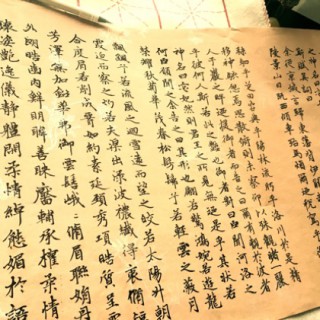 斯賦其詞曰
余從京域言歸東藩背伊
陵景山日既西傾車殆馬煩
芝田容與乎陽林流眄乎洛川於是精
移神駭忽焉思散俯則未察仰以殊觀睹一麗
人于巖之畔迺援御者而告之曰爾有覿於彼者
乎彼何人斯若此之艷也御者對曰臣聞河洛之
神名曰宓妃則君王之所見無迺是乎其狀若
何臣願聞之余告之曰其形也翩若驚鴻婉若遊龍
榮耀秋菊華茂春松髣髴兮若輕雲之蔽月
飄颻兮若流風之迴雪遠而望之皎若太陽升朝
霞迫而察之灼若芙蕖出淥波襛纖得衷脩短
合度肩若削成腰如約素延頸秀項皓質呈露
芳澤無加鉛華弗御雲髻峩峩脩眉聯娟丹
外朗皓齒內鮮明眸善睞靨輔承權
姿艷逸儀靜體閑柔情綽態媚於語